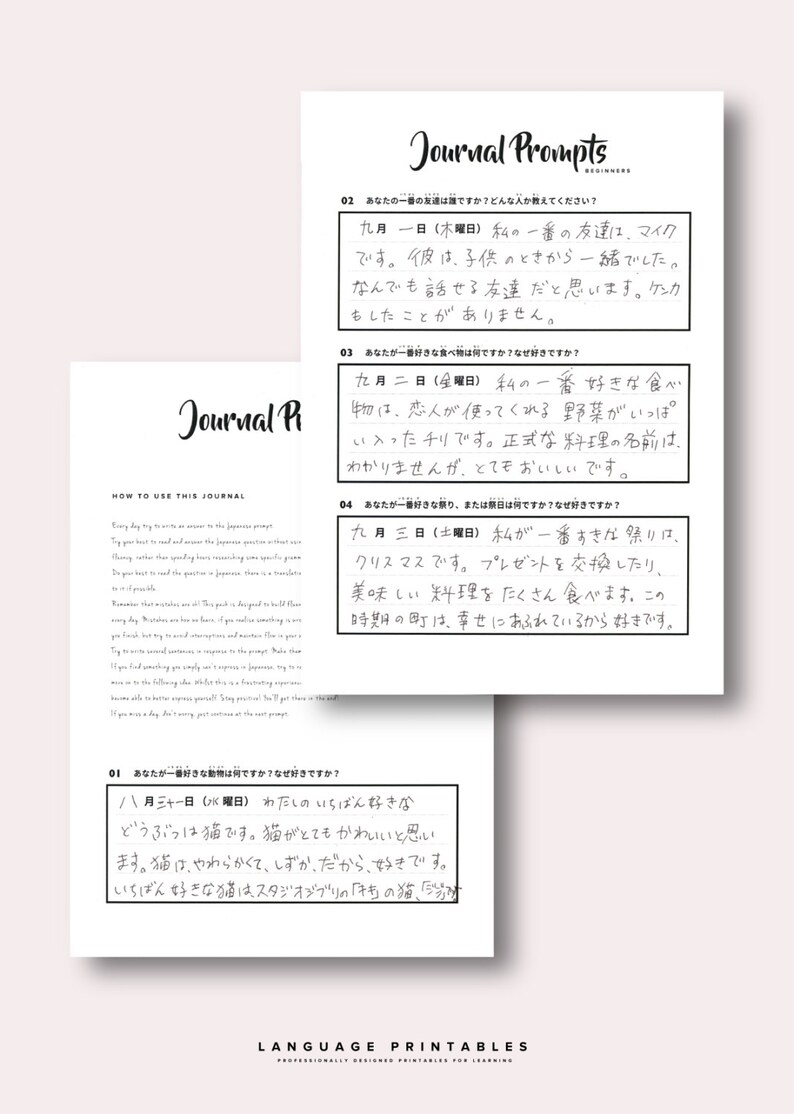 Journal Prompts
BEGINNERS
02 あなたの一番の友達は誰ですか？どんな人か教えてください？
九月 一日（木曜日） 私の一番の友達は、マイク
です。彼は、子供のときから一緒でした。
なんでも話せる友達だと思います。ケンカ
もしたことがありません。
03 あなたが一番好きな食べ物は何ですか？なぜ好きですか？
九月 二日（金曜日） 私の一番 好きな食べ
物は、恋人が使ってくれる 野菜がいっぱ
い入ったチリです。正式な料理の名前は、
わかりませんが、とてもおいしいです。
04 あなたが一番好きな祭り、または祭日は何ですか？なぜ好きですか？
九月 三日（土曜日） 私が一番すきな祭りは、
クリスマスです。プレゼントを交換したり、
美味しい料理をたくさん食べます。この
時期の町は、幸せにあふれているから好きです。
Journal Pr
HOW TO USE THIS JOURNAL
Every day try to write an answer to the Japanese prompt.
Try your best to read and answer the Japanese question without usin
fluency, rather than spending hours researching some specific gramm
Do your best to read the question in Japanese, there is a translatio
to it if possible.
Remember that mistakes are ok! This pack is designed to build fluen
every day. Mistakes are how we learn, if you realise something is wr
you finish, but try to avoid interruptions and maintain flow in your
Try to write several sentences in response to the prompt. Make them
If you find something you simply can't express in Japanese, try to re
move on to the following idea. Whilst this is a frustrating experienc
become able to better express yourself. Stay positive! You'll get there in the end!
If you miss a day, don't worry, just continue at the next prompt.
01 あなたが一番好きな動物は何ですか？なぜ好きですか？
八月三十一日（水曜日） わたしのいちばん好きな
どうぶつは猫です。猫がとてもかわいいと思い
ます。猫は、やわらかくて、しずか、だから、好きです。
いちばん好きな猫は、スタジオジブリの「キキ」の猫、「ジジ」です
LANGUAGE PRINTABLES
PROFESSIONALLY DESIGNED PRINTABLES FOR LEARNING